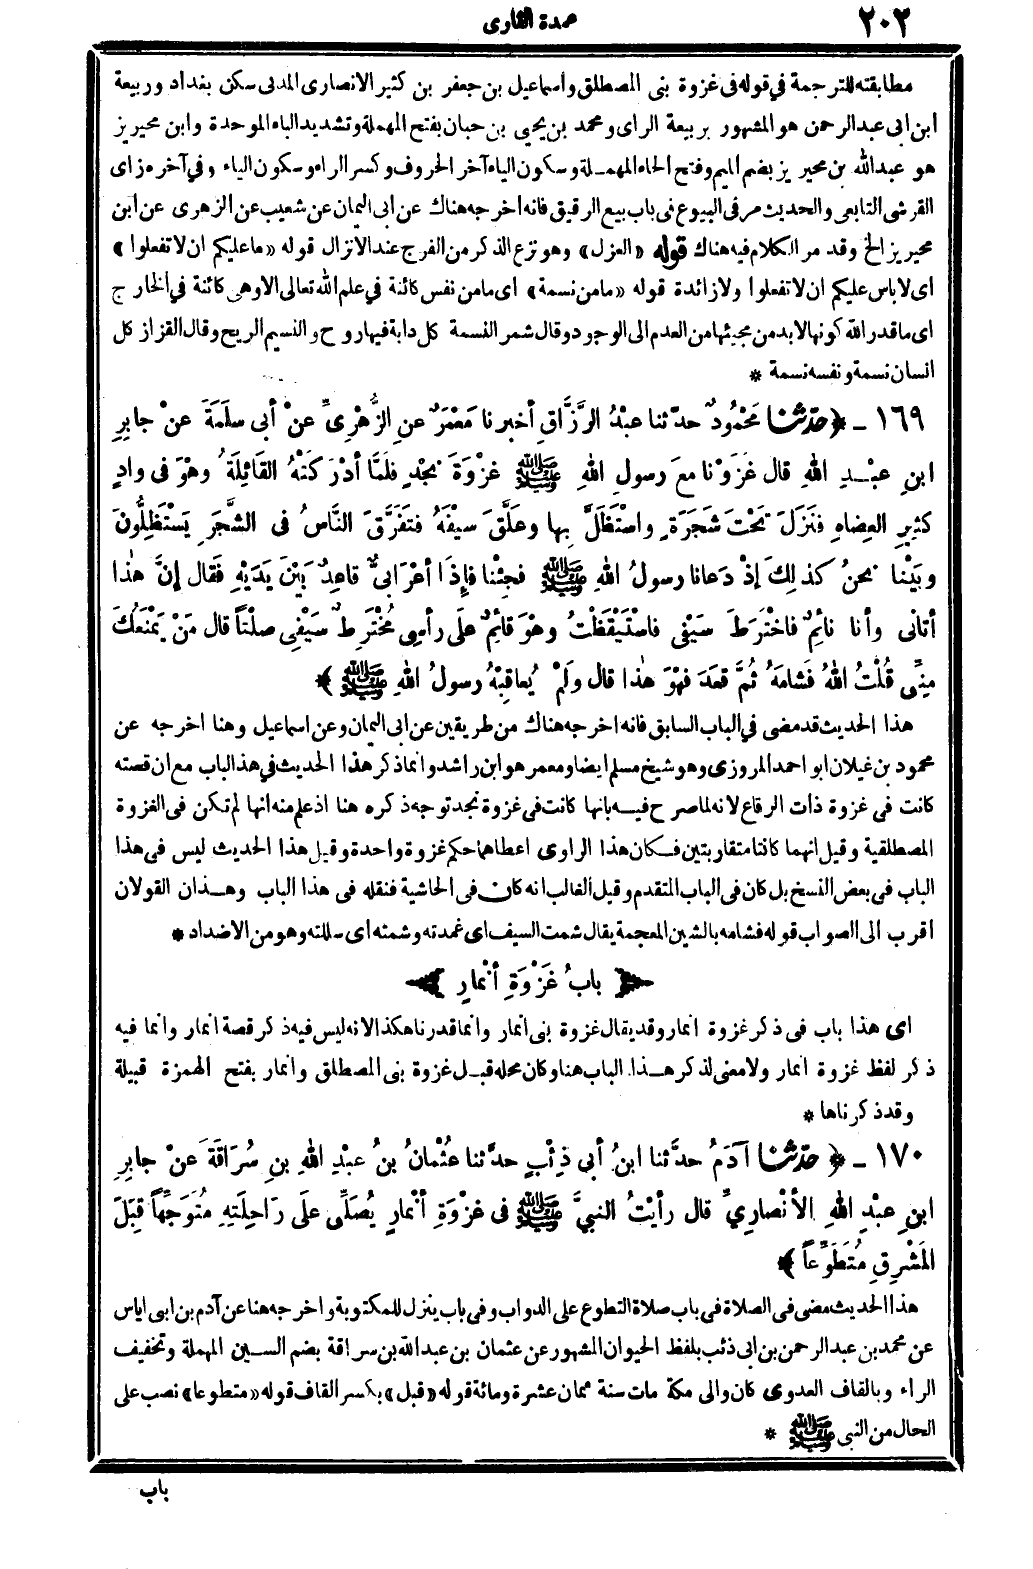 ٢٠٢
عمدة القارى
مطابقته للترجمة في قوله فى غزوة بنى المصطلق واسماعيل بن جعفر بن كثير الانصارى المدنى سكن بغداد وربيعة
ابن ابى عبد الرحمن هو المشهور بربيعة الراى ومحمد بن يحيى بن حبان بفتح المهملة وتشديد الباء الموحدة وابن محيريز
هو عبد الله بن محيريز بضم الميم وفتح الحاء المهملة وسكون الياء آخر الحروف وكسر الراء وسكون الياء وفي آخره زاى
القرشى التابعى والحديث مر فى البيوع فى باب بيع الرقيق فانه اخرجه هناك عن ابى اليمان عن شعيب عن الزهرى عن ابن
محيريز الخ وقد مر الكلام فيه هناك قوله «العزل» وهو نزع الذكر من الفرج عند الانزال قوله «ما عليكم ان لا تفعلوا»
اى لا باس عليكم ان لا تفعلوا ولا زائدة قوله «مامن نسمة» اى مامن نفس كائنة في علم الله تعالى الا وهى كائنة في الخارج
اى ما قدر الله كونها لابد من مجيئها من العدم الى الوجود وقال شمر النسمة كل دابة فيها روح والنسيم الريح وقال القزاز كل
انسان نسمة ونفسه نسمة *
١٦٩ ـ ﴿ حدّثنا مَحْمُودٌ حدّثنا عبْدُ الرَّزَّاقِ أخبرنا مَعْمَرٌ عنِ الزُّهْرِىِّ عنْ أبى سلَمَةَ عنْ جابِرِ
ابنِ عبْدِ اللهِ قال غزَوْنا معَ رسولِ اللهِ ﷺ غزْوَةَ نَجْدٍ فلَمَّا أدْرَكَتْهُ القَائِلَةُ وهْوَ فى وادٍ
كثِيرِ العِضاهِ فنَزَلَ تَحْتَ شَجَرَةٍ واسْتَظَلَّ بِها وعلَّقَ سيْفَهُ فتَفَرَّقَ النَّاسُ فى الشَّجَرِ يَسْتَظِلُّونَ
وبَيْنا نحنُ كذلِكَ إذْ دَعانا رسولُ اللهِ ﷺ فجِئْنا فإِذَا أعْرَابىٌّ قاعِدٌ بَيْنَ يَدَيْهِ فَقال إنَّ هٰذا
أتانى وأنا نائِمٌ فاخْتَرَطَ سَيْفى فاسْتَيْقَظْتُ وهْوَ قائِمٌ علَى رأسِى مُخْتَرِطٌ سَيْفِى صلْتاً قال مَنْ يَمْنَعُكَ
مِنِّى قُلْتُ اللهُ فَشامَهُ ثُمَّ قعَدَ فهْوَ هٰذا قال ولَمْ يُعاقِبْهُ رسولُ اللهِ ﷺ ﴾
هذا الحديث قد مضى في الباب السابق فانه اخرجه هناك من طريقين عن ابى اليمان وعن اسماعيل وهنا اخرجه عن
محمود بن غيلان ابو احمد المروزى وهو شيخ مسلم ايضا ومعمر هو ابن راشد وانما ذكر هذا الحديث في هذا الباب مع ان قصته
كانت فى غزوة ذات الرقاع لانه لما صرح فيه بانها كانت فى غزوة نجد توجه ذكره هنا اذ علم منه انها لم تكن فى الغزوة
المصطلقية وقيل انهما كانتا متقاربتين فكان هذا الراوى اعطاهما حكم غزوة واحدة وقيل هذا الحديث ليس فى هذا
الباب فى بعض النسخ بل كان فى الباب المتقدم وقيل الغالب انه كان فى الحاشية فنقله فى هذا الباب وهذان القولان
اقرب الى الصواب قوله فشامه بالشين المعجمة يقال شمت السيف اى غمدته وشمته اى سللته وهو من الاضداد *
﴿ بابُ غَزْوَةِ أنْمارٍ ﴾
اى هذا باب فى ذكر غزوة انمار وقد يقال غزوة بنى انمار وانما قدرنا هكذا لانه ليس فيه ذكر قصة انمار وانما فيه
ذكر لفظ غزوة انمار ولا معنى لذكر هذا الباب هنا وكان محله قبل غزوة بنى المصطلق وانمار بفتح الهمزة قبيلة
وقد ذكرناها *
١٧٠ ـ ﴿ حدّثنا آدَمُ حدَّثنا ابنُ أبي ذِئْبٍ حدَّثنا عُثْمانُ بنُ عبْدِ اللهِ بنِ سُرَاقَةَ عنْ جابِرِ
ابنِ عبْدِ اللهِ الأنْصارِيِّ قال رأيْتُ النبيَّ ﷺ فى غزْوَةِ أنْمارٍ يُصَلِّى علَى رَاحِلَتِهِ مُتَوَجِّهاً قِبَلَ
المَشْرِقِ مُتَطَوِّعاً ﴾
هذا الحديث مضى فى الصلاة فى باب صلاة التطوع على الدواب وفى باب ينزل للمكتوبة واخرجه هنا عن آدم بن ابى اياس
عن محمد بن عبد الرحمن بن ابى ذئب بلفظ الحيوان المشهور عن عثمان بن عبد الله بن سراقة بضم السين المهملة وتخفيف
الراء وبالقاف العدوى كان والى مكة مات سنة ثمان عشرة ومائة قوله «قبل» بكسر القاف قوله «متطوعا» نصب على
الحال من النبى ﷺ *
باب